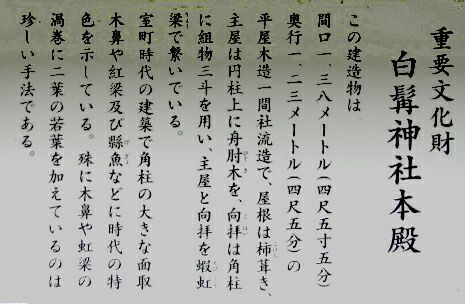 重要文化財
白髯神社本殿
この建造物は
間口一、三八メートル(四尺五寸五分)
奥行一、二三メートル(四尺五分)の
平屋木造一間社流造で、屋根は柿葺き、
主屋は円柱上に舟肘木を、向拝は角柱
に組物三斗を用い、主屋と向拝を蝦虹
梁で繋いでいる。
室町時代の建築で角柱の大きな面取
木鼻や紅梁及び縣魚などに時代の特
色を示している。殊に木鼻や虹梁の
渦巻に二葉の若葉を加えているのは
珍しい手法である。